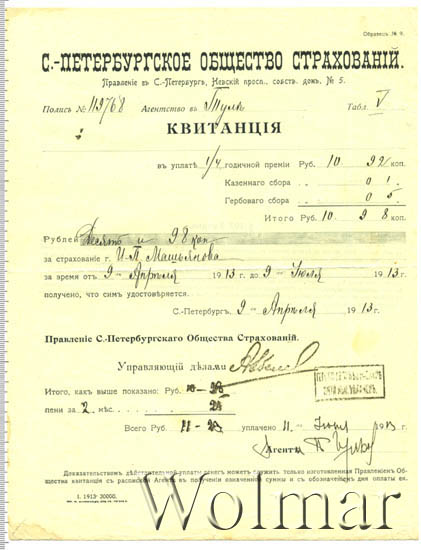 Образецъ № 9.
С.-ПЕТЕРБУРГСКОЕ ОБЩЕСТВО СТРАХОВАНІЙ.
Правленіе въ С.-Петербургѣ, Невскій просп., собств. домъ, № 5.
Полисъ № 119768 Агентство въ Тулѣ Табл. V
КВИТАНЦІЯ
въ уплатѣ 1/4 годичной преміи Руб. 10 92 коп.
Казеннаго сбора 0 1
Гербоваго сбора 0 5
Итого Руб. 10 98 коп.
Рублей Десять и 98 коп
за страхованіе г. И. П. Машьянова
за время отъ 9 Апрѣля 1913 г. до 9 Іюля 1913 г.
получено, что симъ удостовѣряется.
С.-Петербургъ, 9 Апрѣля 1913 г.
Правленіе С.-Петербургскаго Общества Страхованій.
Управляющій дѣлами
Итого, какъ выше показано: Руб. 10 98
пени за 2 мѣс.
Всего Руб. уплачено 11 1913
Агентъ
Доказательствомъ дѣйствительной уплаты денегъ можетъ служить только изготовленная Правленіемъ Об-
щества квитанція съ распиской Агента въ полученіи означенной суммы и съ обозначеніемъ дня оплаты ея.
I. 1913 30000.
Wolmar